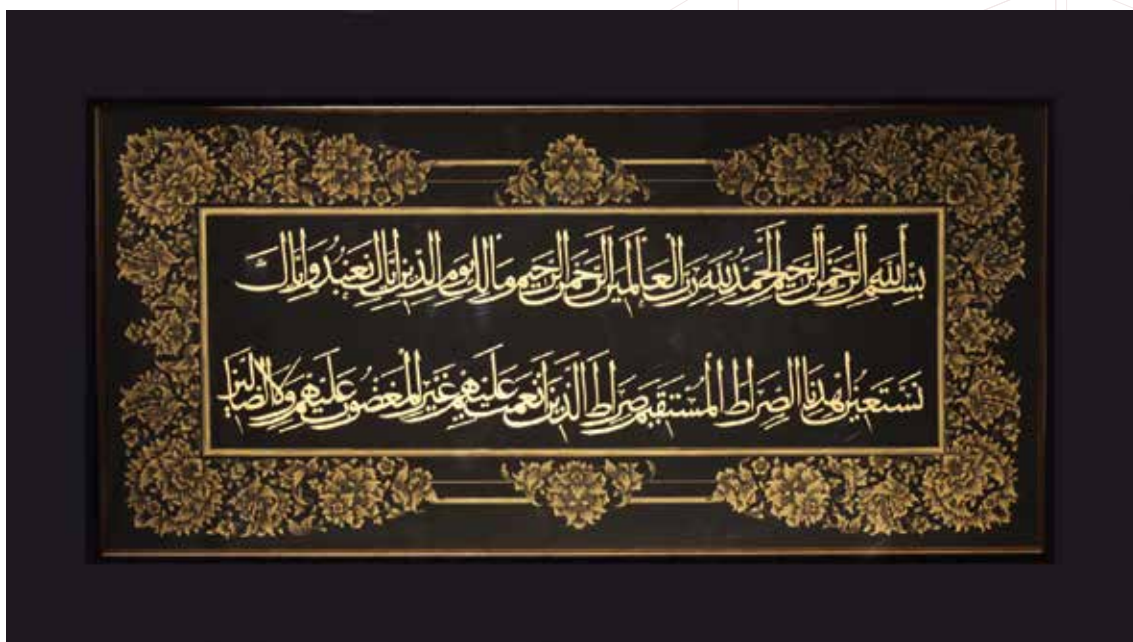 بسم الله الرحمن الرحيم الحمد لله رب العالمين الرحمن الرحيم مالك يوم الدين إياك نعبد وإياك
نستعين اهدنا الصراط المستقيم صراط الذين أنعمت عليهم غير المغضوب عليهم ولا الضالين